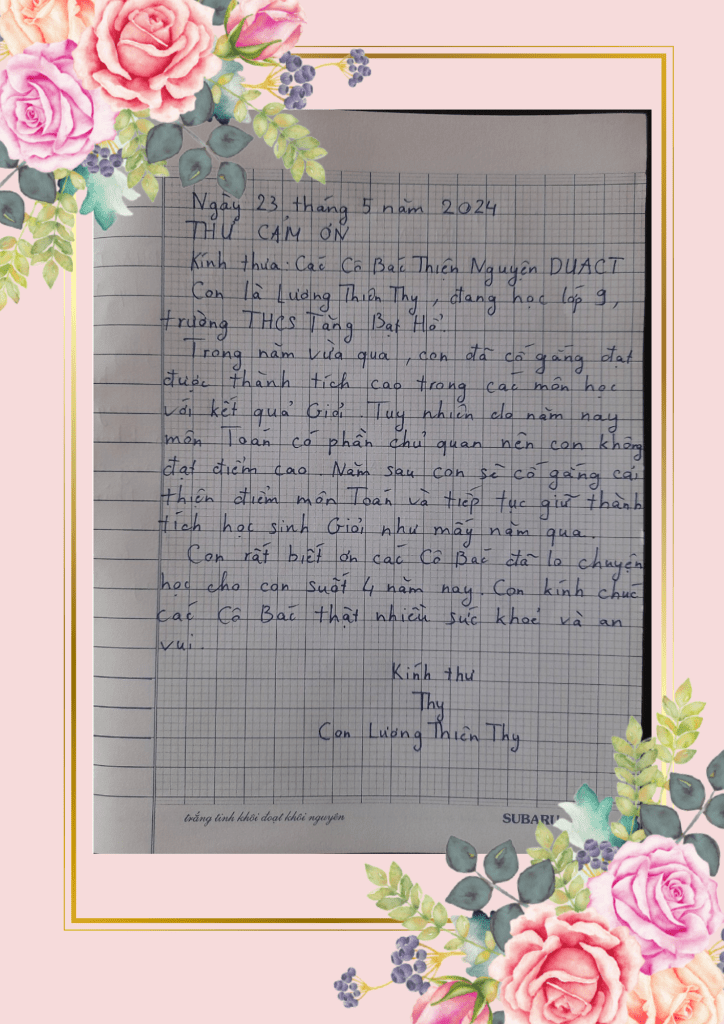 Ngày 23 tháng 5 năm 2024
THƯ CẢM ƠN
Kính thưa: Các Cô Bác Thiện Nguyện DUACT
Con là Lương Thiên Thy, đang học lớp 9,
trường THCS Tăng Bạt Hổ.
Trong năm vừa qua, con đã cố gắng đạt
được thành tích cao trong các môn học
với kết quả Giỏi. Tuy nhiên do năm nay
môn Toán có phần chủ quan nên con không
đạt điểm cao. Năm sau con sẽ cố gắng cải
thiện điểm môn Toán và tiếp tục giữ thành
tích học sinh Giỏi như mấy năm qua.
Con rất biết ơn các Cô Bác đã lo chuyện
học cho con suốt 4 năm nay. Con kính chúc
các Cô Bác thật nhiều sức khoẻ và an
vui.
Kính thư
Thy
Con Lương Thiên Thy
trắng tinh khôi đoạt khôi nguyên
SUBARU